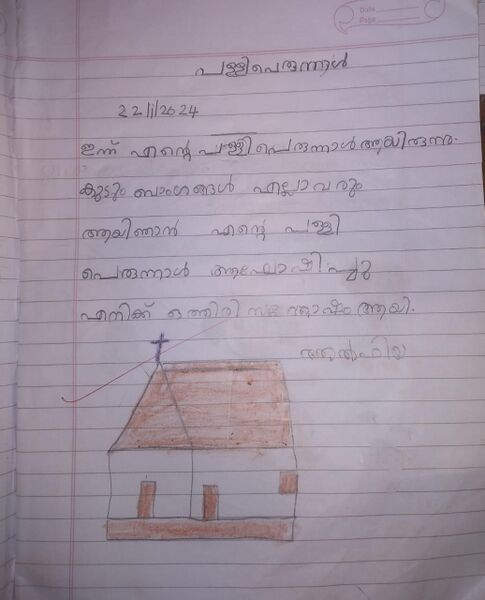 Date
Page
പള്ളിപെരുന്നാൾ
22/1/2024
ഇന്ന് എന്റെ പള്ളി പെരുന്നാൾ ആയിരുന്നു.
കുടുംബാംഗങ്ങൾ എല്ലാവരും
ആയി ഞാൻ എന്റെ പള്ളി
പെരുന്നാൾ ആഘോഷിച്ചു
എനിക്ക് ഒത്തിരി സന്തോഷം ആയി.